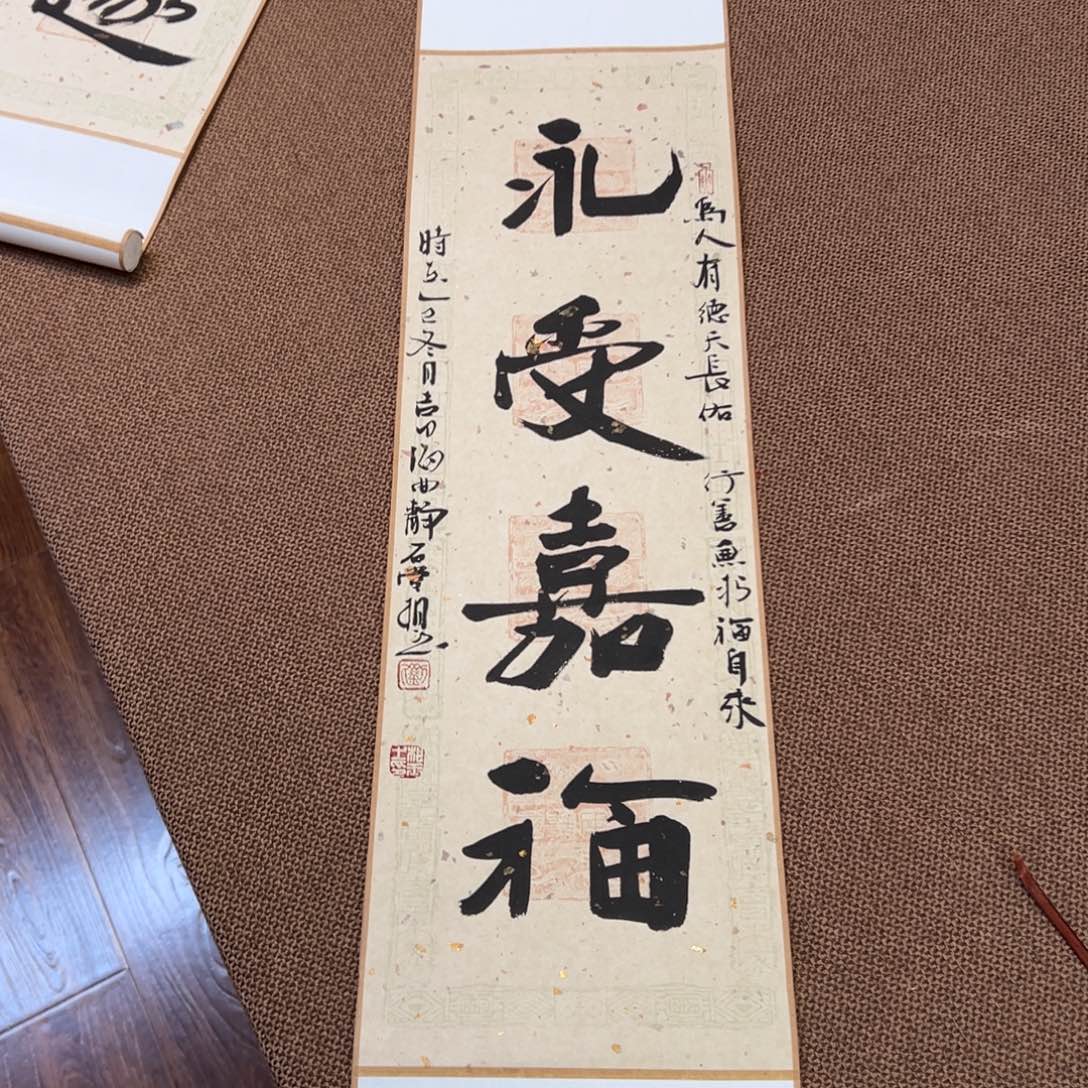 為人有德天長佑 行善無求福自來
永受嘉福
時在乙巳冬月吉日海曲靜石堂